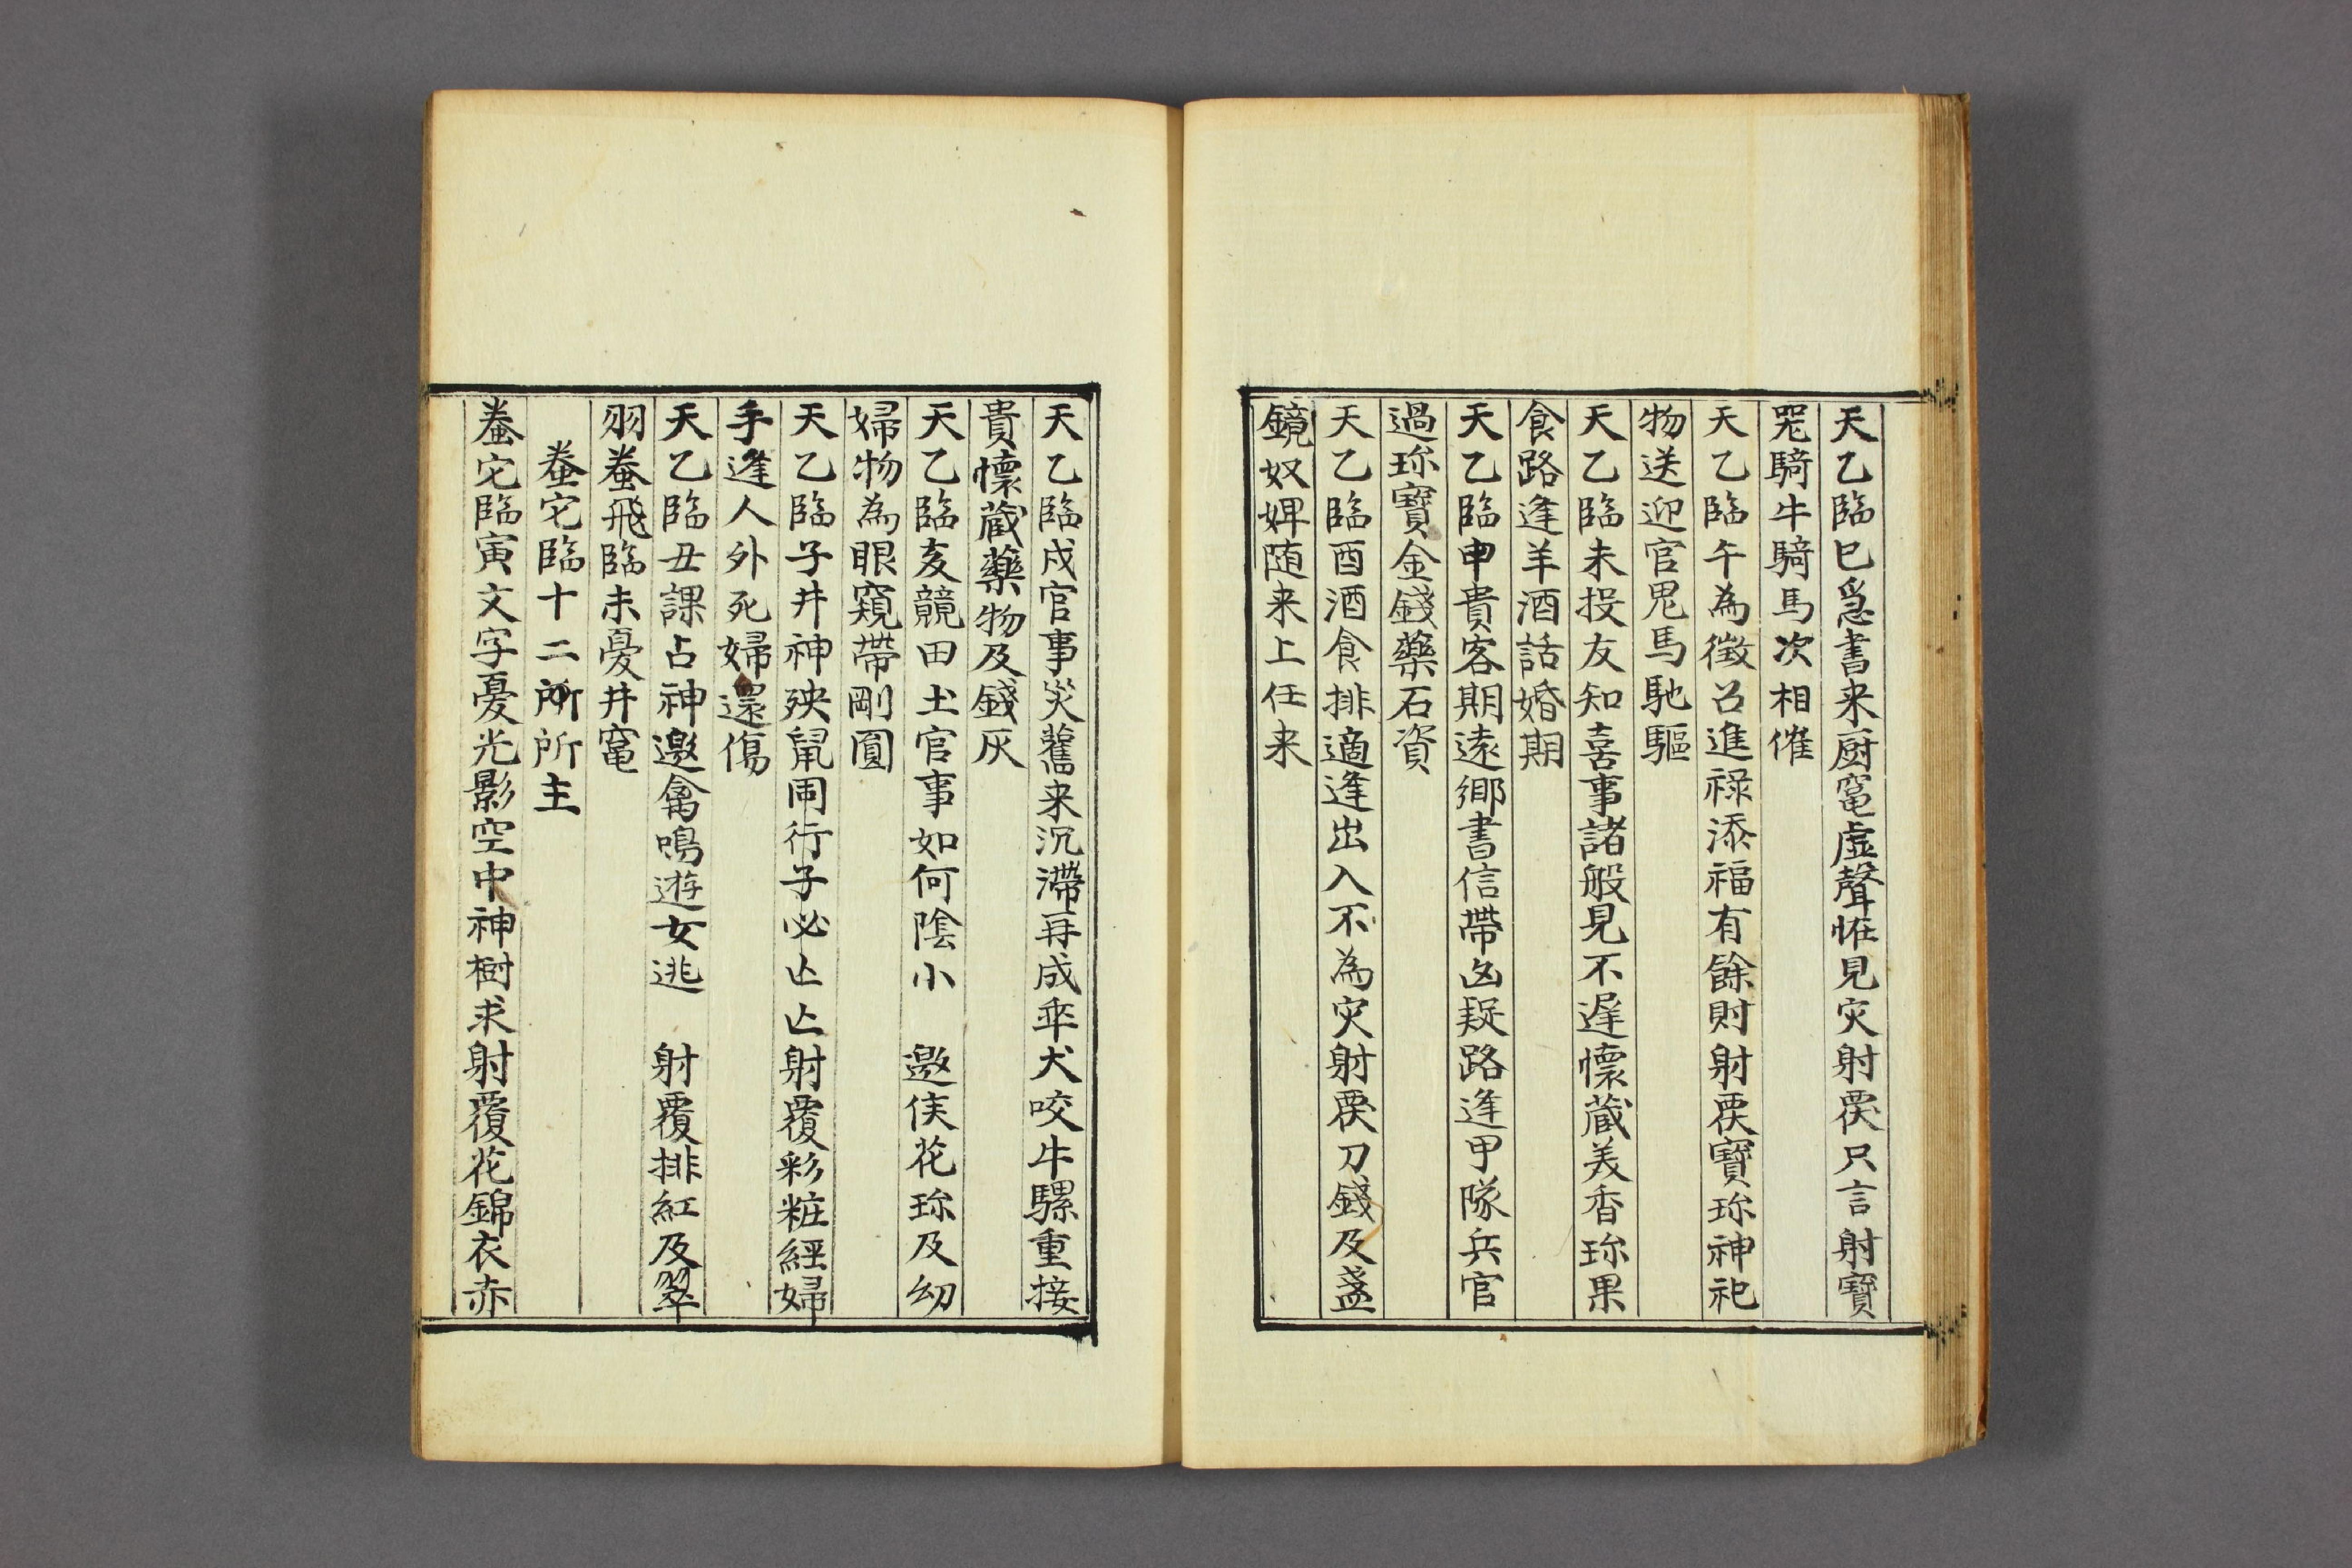 天乙臨巳爲書来厨竃虚聲恠見灾射覆只言射寳
咒騎牛騎馬次相催
天乙臨午為徴召進禄添福有餘財射覆寳珎神祀
物送迎官鬼馬馳驅
天乙臨未投友知喜事諸般見不遅懐蔵美香珎果
食路逢羊酒話婚期
天乙臨申貴客期遠鄉書信帶凶疑路逢甲隊兵官
過珎寳金錢藥石資
天乙臨酉酒食排適逢出入不為灾射覆刀錢及盞
鏡奴婢随来上任来
天乙臨戌官事災舊来沉滯再成乖犬咬牛騾重接
貴懷蔵藥物及錢灰
天乙臨亥競田土官事如何陰小 邀侯花珎及幼
婦物為眼窺帶剛圓
天乙臨子井神殃鼠鬧行子必亡亡射覆彩粧經婦
手逢人外死婦還傷
天乙臨丑課占神邀禽鳴遊女逃 射覆排紅及翠
羽蚕飛臨未憂井竃
蚕宅臨十二所所主
蚕宅臨寅文字憂光影空中神樹求射覆花錦衣赤